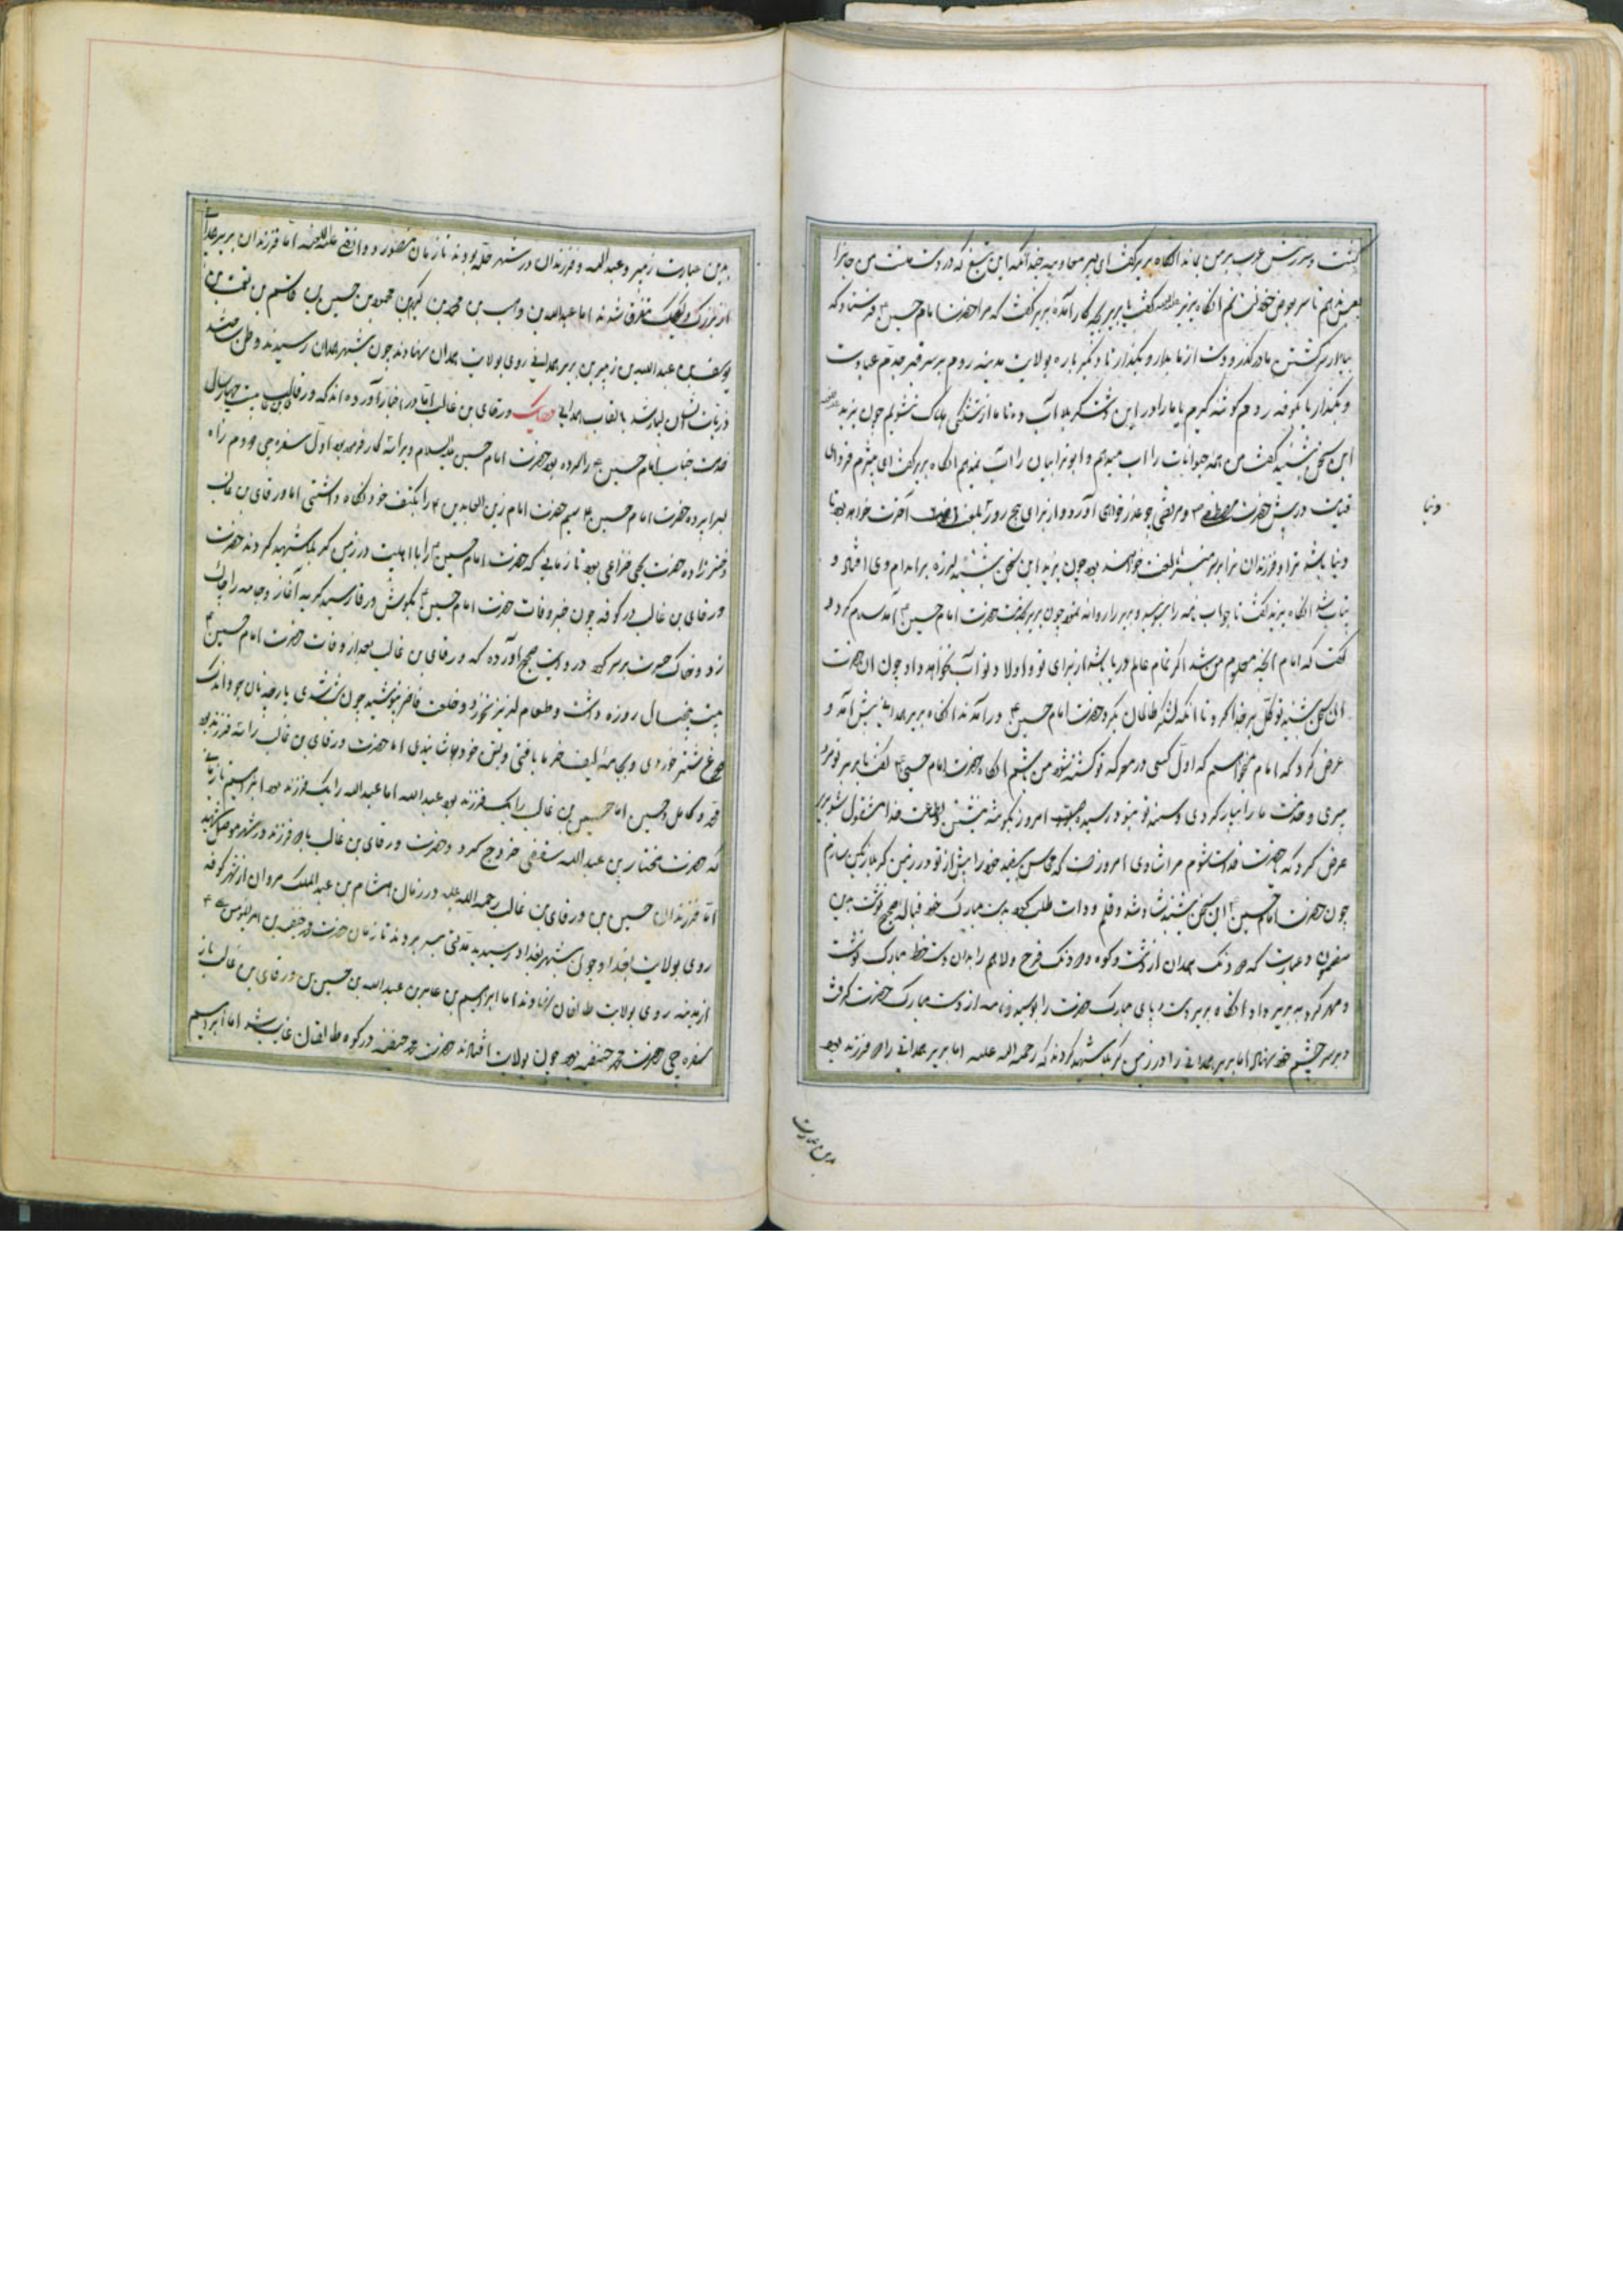 کشت و سرزنش عرب بر من بماند انگاه بریر گفت ای پسر معاویه بخدا که این تیغ که در دست منست من جانرا
بعوض خود نستانم انگاه یزید گفت یا بریر بچه کار آمدهٔ بریر گفت که مرا حضرت امام حسین فرستاد که
بیا از سر کشتن ما درگذر و دست از ما بدار و بگذار تا دیگر باره بولایت مدینه رویم بر سر قبر جدم عبادت
و بگذار تا بکوفه رویم گوشه گیریم یا ما را در این دشت کربلا آب ده تا ما از تشنگی هلاک نشویم چون یزید
این سخن بشنید گفت من همه حیوانات را آب میدهم و ابوترابیان را آب نمیدهم انگاه بریر گفت ای بیشرم فردای
قیامت در پیش حضرت مصطفی و مرتضی چه عذر خواهی آورد و از برای پنج روز آخرت خواهد بود تا
دنیا
دنیا باشد ترا و فرزندان ترا بر سر منبر لعنت خواهند بود چون یزید این سخن بشنید لرزه بر اندام وی افتاد و
بیتاب شد انگاه یزید گفت تا جواب نامه را بنویسید و بریر را روانه نمود چون بریر بخدمت حضرت امام حسین آمد سلام کرد و
گفت که امام آنچه معلوم من شد اگر تمام عالم دریا باشد از برای تو و اولاد تو آب نخواهد داد چون آن حضرت
این سخن بشنید توکل بر خدا کرد تا آنکه لشکر ظالمان بگرد حضرت امام حسین درآمدند انگاه بریر همدانی پیش آمد و
عرض کرد که امام میخواهم که اول کسی در معرکه تو کشته شود من باشم انگاه حضرت امام حسین گفت یا بریر تو مرد
پیری و خدمت ما را بسیار کردی و سینه تو هنوز رسیده امروز بگوشه بنشین و بطاعت خدا مشغول شو بریر
عرض کرد که حضرت فدایت شوم مرا شادی امروز است که محاسن سفید خود را پیش از تو در زمین کربلا رنگین سازم
چون حضرت امام حسین این سخن بشنید شاد شد و قلم و دوات طلب کرد بدست مبارک خود قباله صحیح نوشت بدین
مضمون و عبارت که دو دنگ همدان از دشت و کوه و دو دنگ فرح ولاهم را بدان دستخط مبارک نوشت
و مهر کرد به بریر داد انگاه بریر دست و پای مبارک حضرت را بوسید و نامه از دست مبارک حضرت گرفت
و بر سر چشم خود نهاد اما بریر همدانی را در زمین کربلا شهید کردند که رحمه الله علیه اما بریر همدانی را دو فرزند بود
بدین عبارت
بدین عبارت زهیر و عبدالله و فرزندان در شهر حله بودند تا زمان منصور دوانقی علیه اللعنه اما فرزندان بریر همدانی
از بزرگ و کوچک متفرق شدند اما عبدالله بن وهب بن محمد بن کیهن بن محمود بن حسین بن قاسم بن بن
یوسف بن عبدالله بن زهیر بن بریر همدانی روی بولایت همدان نهادند چون بشهر همدان رسیدند وطن ساختند
ذریات ایشان بسیار شد بالقاب همدانی ورقای بن غالب اما در اخبار آورده اند که ورقای بن غالب بیست چهار سال
خدمت جناب امام حسین را کرده بود حضرت امام حسین علیه السلام ویرا سه کار فرموده بود اول سفره چی و دوم راه
سرا پرده حضرت امام حسین سیم حضرت امام زین العابدین را بکتف خود نگاه داشتی اما ورقای بن غالب
دختر زاده حضرت یحیی خزاعی بود تا زمانی که حضرت امام حسین را با اهلبیت در زمین کربلا شهید کردند حضرت
ورقای بن غالب در کوفه چون خبر وفات حضرت امام حسین بگوش ورقا رسید گریه آغاز و جامه را چاک
زد و خاک حسرت بر سر کرد در روایت صحیح آورده که ورقای بن غالب بعد از وفات حضرت امام حسین
بیست پنجسال روزه داشت و طعام لذیذ نخورد و خلعت فاخر نپوشید چون شب شدی پارچه نان جو و اندک
دوغ شتر خوردی و جامهٔ لیف خرما بافتی و بتن خود پوشانیدی اما حضرت ورقای بن غالب را سه فرزند بود
محمد و کامل و حسین اما حسین بن غالب را یک فرزند بود عبدالله اما عبدالله را یک فرزند بود ابراهیم تا زمانی
که حضرت مختار بن عبدالله سقفی خروج کرد و حضرت ورقای بن غالب با دو فرزند در شهر موصل شهید
اما فرزندان حسین بن ورقای بن غالب رحمه الله علیه در زمان هشام بن عبدالملک مروان از شهر کوفه
روی بولایت بغداد چون بشهر بغداد رسیدند مدتی بسر بردند تا زمان حضرت محمد حنفیه بن امیرالمؤمنین
از مدینه روی بولایت طالقان نهادند اما ابراهیم بن عامر بن عبدالله بن حسین بن ورقای بن غالب باز
سفره چی حضرت محمد حنفیه بود چون بولایت افتادند حضرت محمد حنفیه در کوه طالقان غایب شد اما ابراهیم